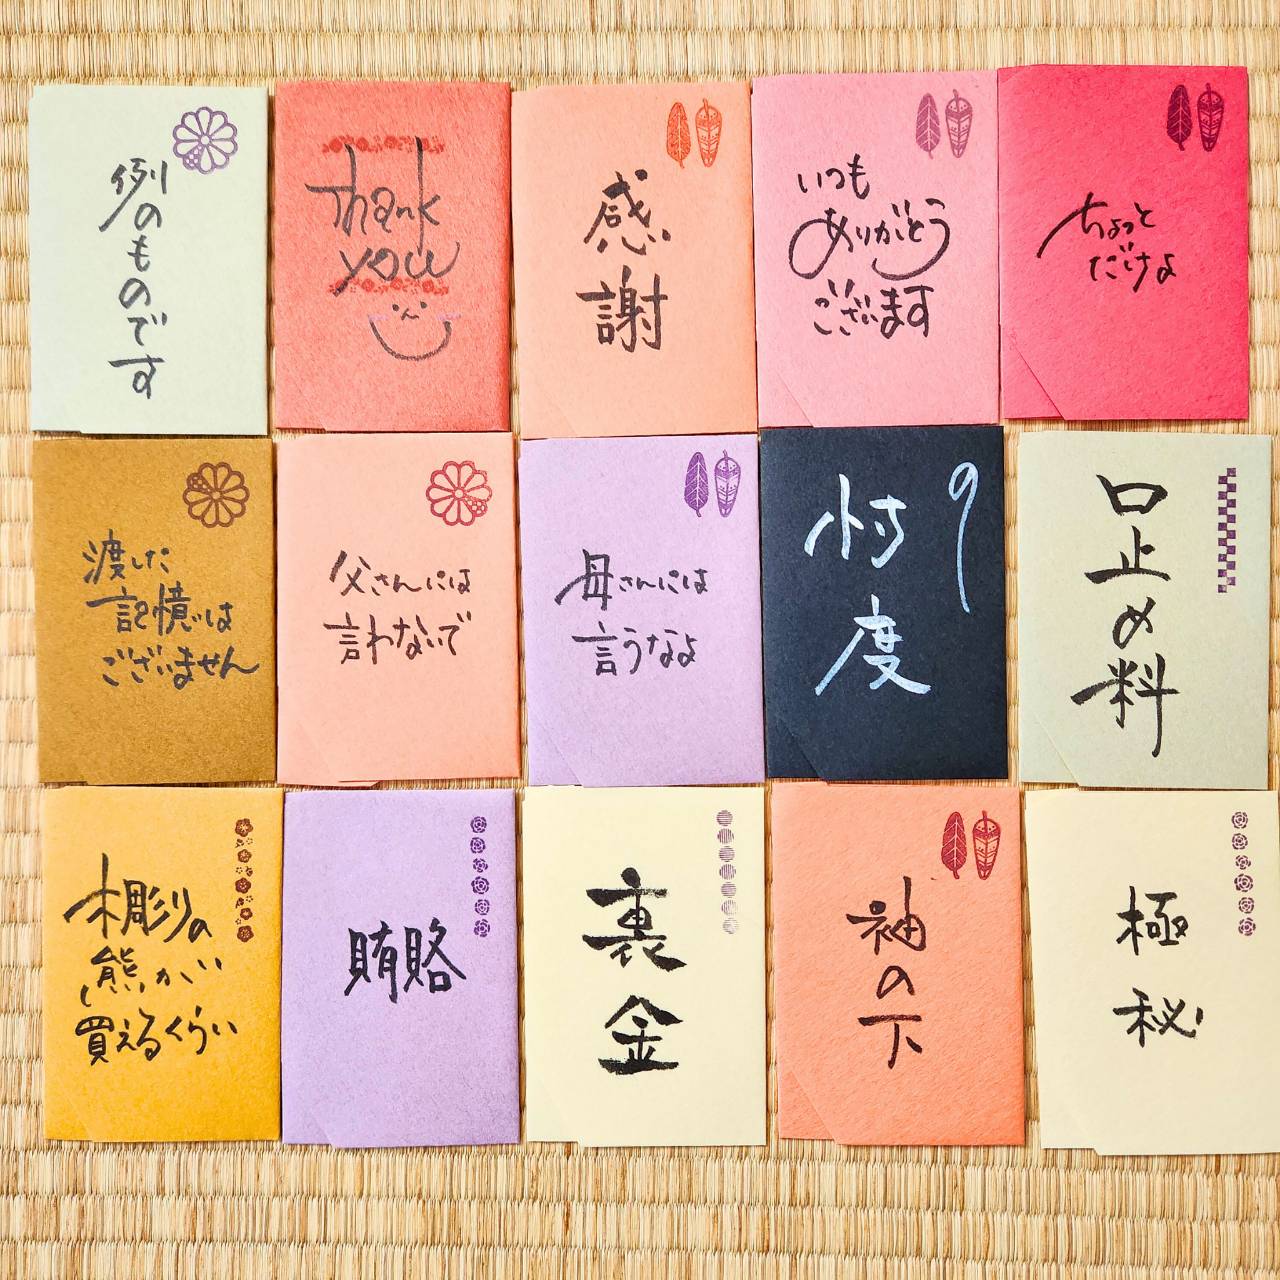 例のものです
Thank
you
感謝
いつも
ありがとう
ございます
ちょっと
だけよ
渡した
記憶は
ございません
父さんには
言わないで
母さんには
言うなよ
忖度
口止め料
木彫りの
熊がい
買えるくらい
賄賂
裏金
袖の下
極秘